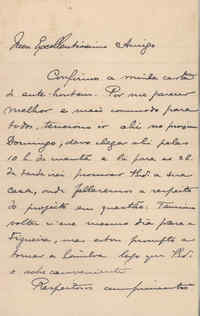 Meu Excellentissimo Amigo
Confirmo a minha carta
de ante-hontem. Por me parecer
melhor e mais commodo para
todos, tenciono ir ahi no proximo
Domingo, devo chegar ahi pelas
10 h. da manhã e lá para as 2 h.
da tarde irei procurar a sua
casa, onde fallaremos a respeito
do projecto em questão. Tenciono
voltar n'esse mesmo dia para a
Figueira, mas estou prompto a
tornar a Coimbra logo que
o conveniente
Respeitosos cumprimentos